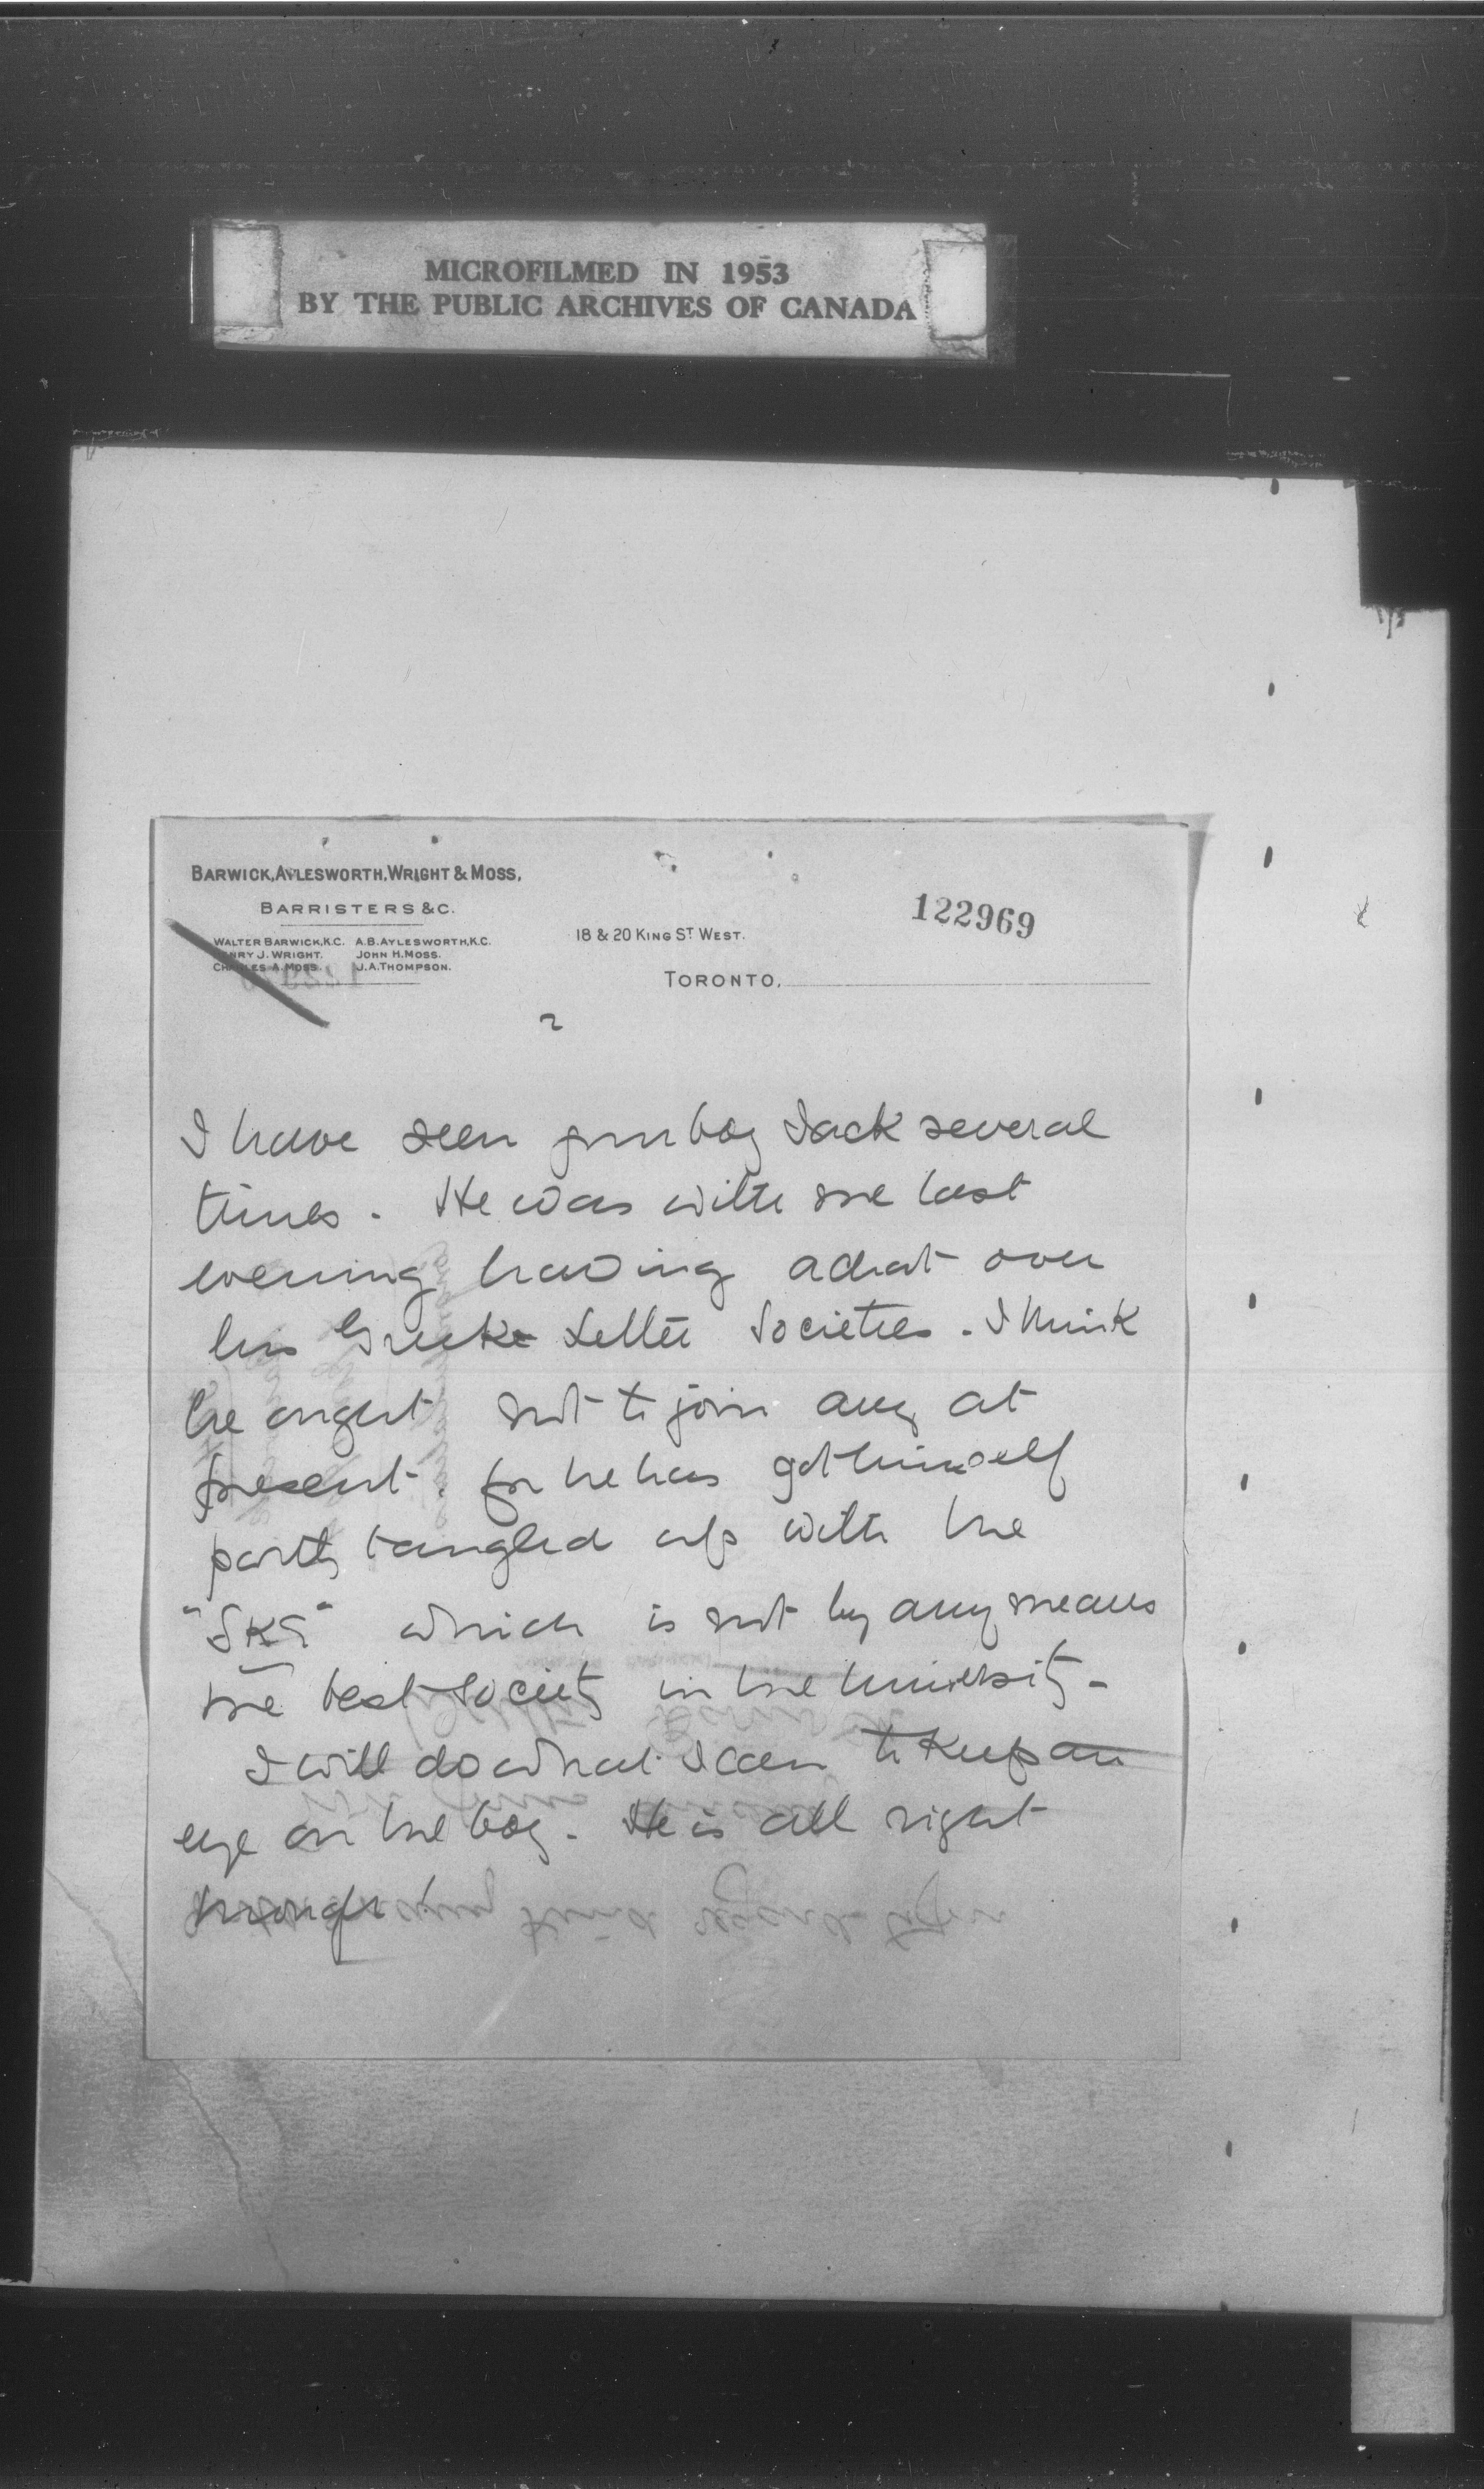 MICROFILMED IN 1953
BY THE PUBLIC ARCHIVES OF CANADA
BARWICK, AYLESWORTH, WRIGHT & MOSS,
BARRISTERS &C.
WALTER BARWICK, K.C. A.B. AYLESWORTH, K.C.
HENRY J. WRIGHT. JOHN H. MOSS.
CHARLES A. MOSS. J.A. THOMPSON.
18 & 20 KING ST. WEST.
122969
TORONTO,
2
I have seen your boy Jack several
times. He was with me last
evening having a chat over
his Greek Letter Societies. I think
he ought not to join any at
present. for he has got himself
partly tangled up with the
which is not by any means
the best society in the University.
I will do what I can to keep an
eye on the boy. He is all right
though!